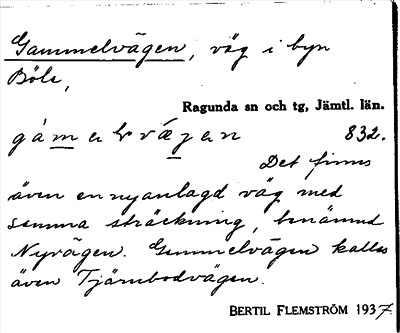 Gammelvägen, väg i byn
Böle,
Ragunda sn och tg, Jämtl. län.
832.
Det finns
även en nyanlagd väg med
samma sträckning, benämnd
Nyvägen. Gammelvägen kallas
även Tjärnbodvägen.
BERTIL FLEMSTRÖM 1937